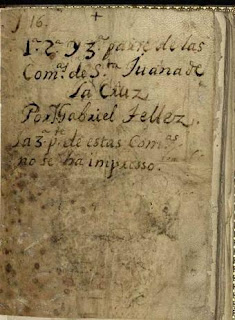 J 16.
+
1ª. 2ª y 3ª parte de las
Comas. de Sta Juana de
la Cruz
Por Gabriel Tellez.
la 3ª pte. de estas Comas.
no se ha impresso.